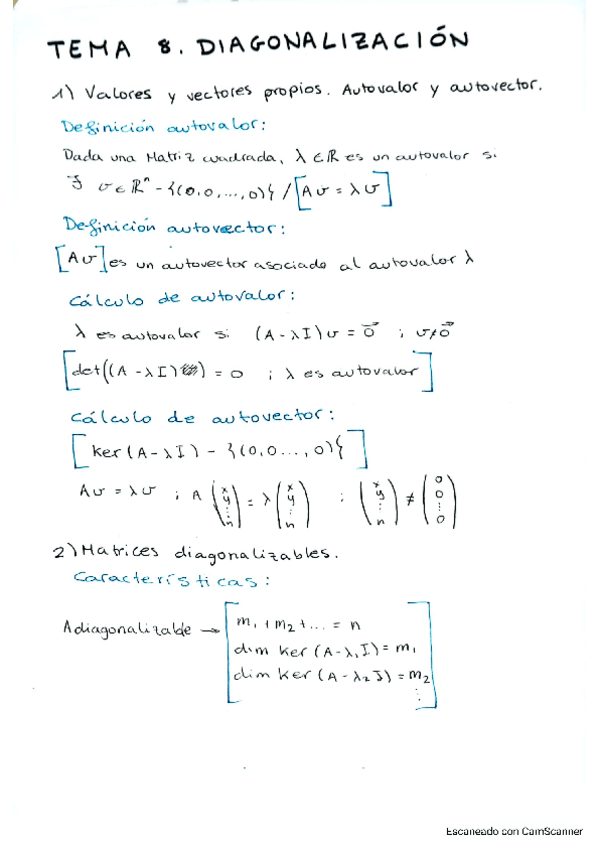 TEMA 8. DIAGONALIZACIÓN
1) Valores y vectores propios. Autovalor y autovector.
Definición autovalor:
Dada una Matriz cuadrada, λ ∈ ℝ es un autovalor si
∃ v ∈ ℝⁿ - {(0,0,...,0)} / [Av = λv]
Definición autovector:
[Av] es un autovector asociado al autovalor λ
Cálculo de autovalor:
λ es autovalor si (A - λI)v = 0⃗ ; v≠0⃗
[det((A - λI)) = 0 ; λ es autovalor]
Cálculo de autovector:
[ker(A - λI) - {(0,0...,0)}]
Av = λv ; A (x y ⋮ n) = λ (x y ⋮ n) ; (x y ⋮ n) ≠ (0 0 ⋮ 0)
2) Matrices diagonalizables.
Características:
A diagonalizable → [m₁ + m₂ + ... = n
dim ker (A - λ₁I) = m₁
dim ker (A - λ₂I) = m₂
⋮]
Escaneado con CamScanner